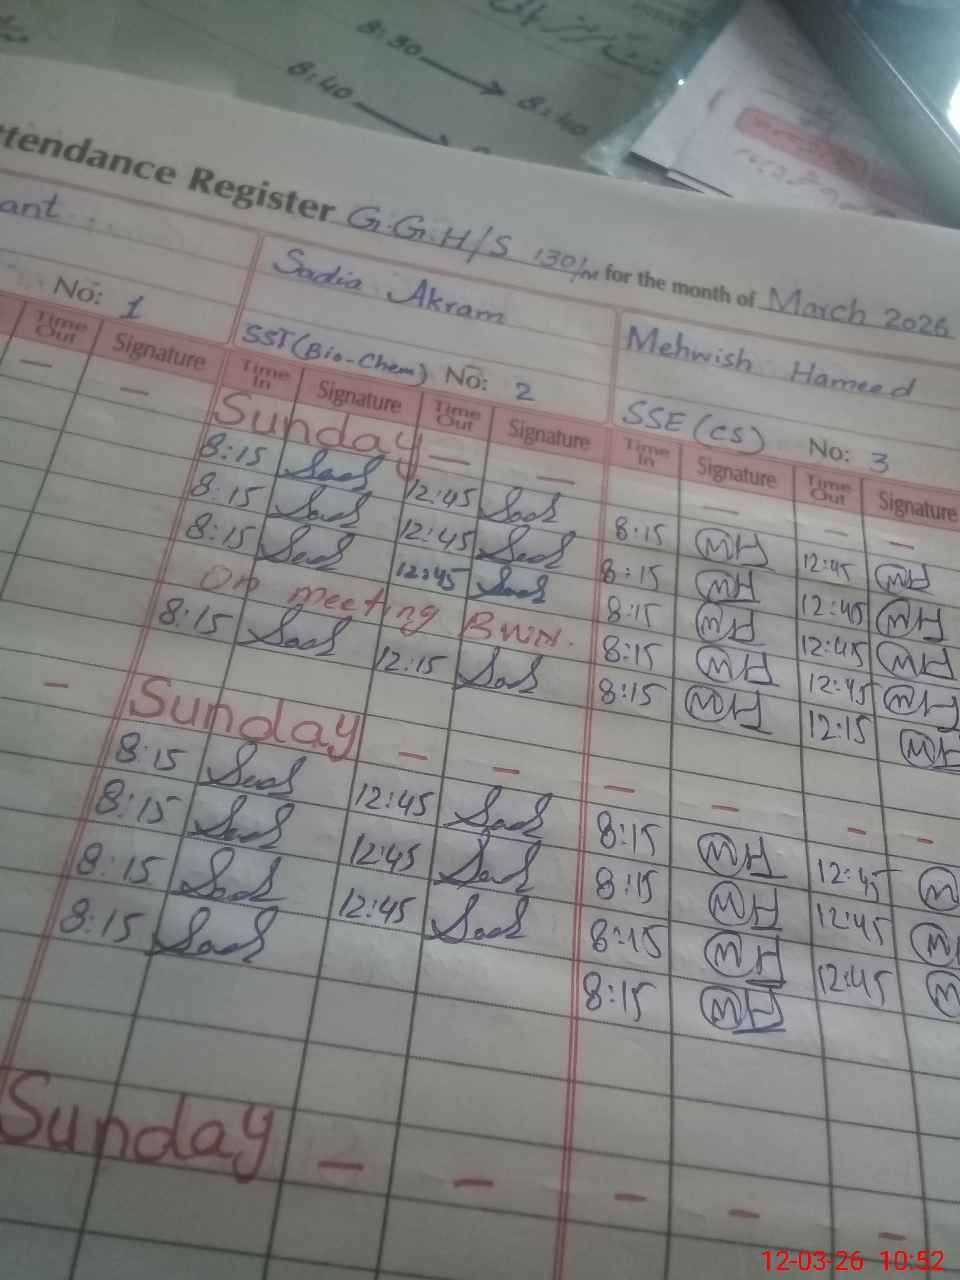 8:30 → 8:40
8:40 →
ttendance Register G.G.H/S 130/ for the month of March 2026
ant
Sadia Akram
Mehwish Hameed
No: 1
SST (Bio-Chem) No: 2
SSE (CS) No: 3
Time Out Signature Time In Signature Time Out Signature Time In Signature Time Out Signature
— — Sunday — — — — —
8:15 Saad 12:45 Saad 8:15 MH 12:45 MH
8:15 Saad 12:45 Saad 8:15 MH 12:45 MH
8:15 Saad 12:45 Saad 8:15 MH 12:45 MH
On meeting BWN. 8:15 MH 12:45 MH
8:15 Saad 12:15 Sad 8:15 MH 12:15 MH
— Sunday — — — — — —
8:15 Saad 12:45 Saad 8:15 MH 12:45 M
8:15 Saad 12:45 Saad 8:15 MH 12:45 M
8:15 Saad 12:45 Saad 8:15 MH 12:45 M
8:15 Saad 8:15 MH
Sunday — — — — —
12-03-26 10:52